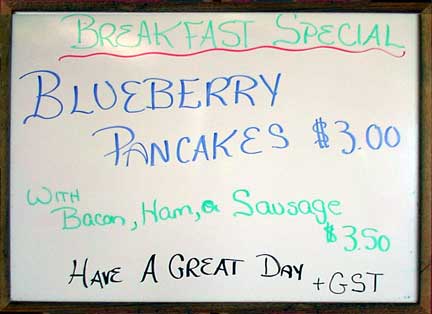 BREAKFAST SPECIAL
BLUEBERRY
PANCAKES $3.00
WITH
Bacon, Ham, or Sausage
$3.50
HAVE A GREAT DAY +GST